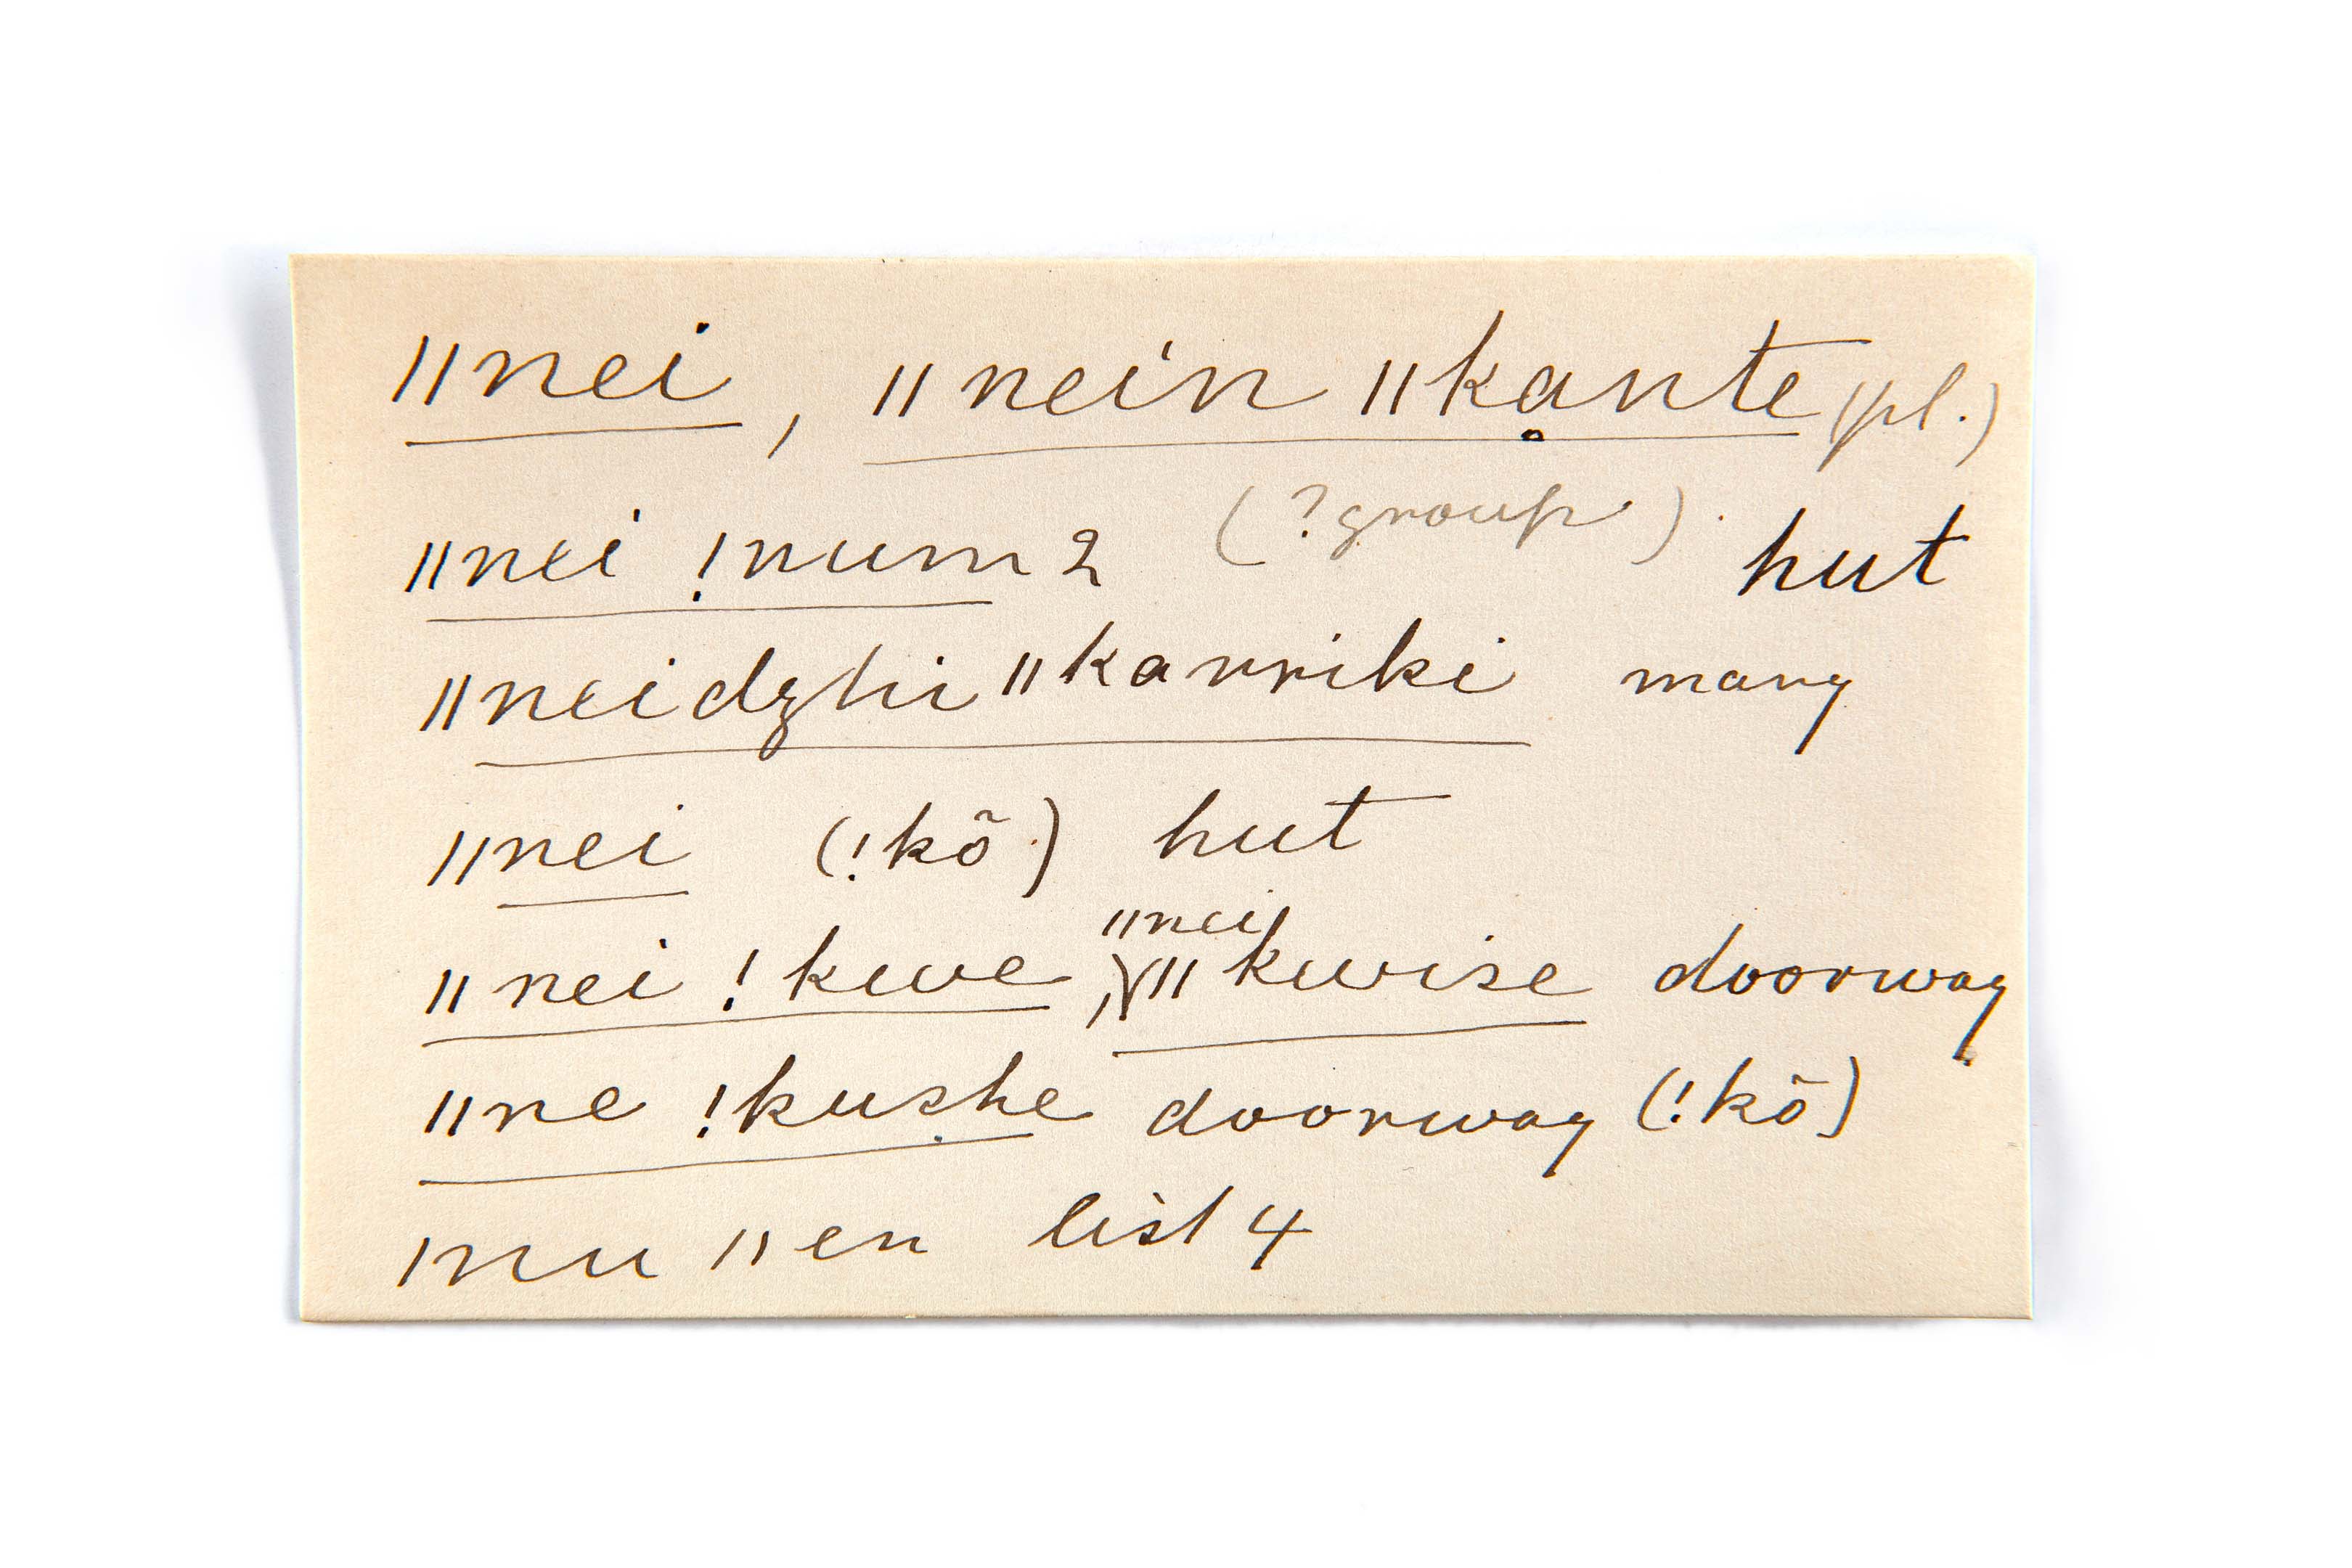 ǁnei, ǁnein ǁkạnte (pl.)
ǁnei !num 2 (?group) hut
ǁneidzhi ǁkanriki many
ǁnei (!kõ) hut
ǁnei
ǁnei !kwe, ǁkwise doorway
ǁne !kuṣhe doorway (!kõ)
ǀnu ǁen list 4